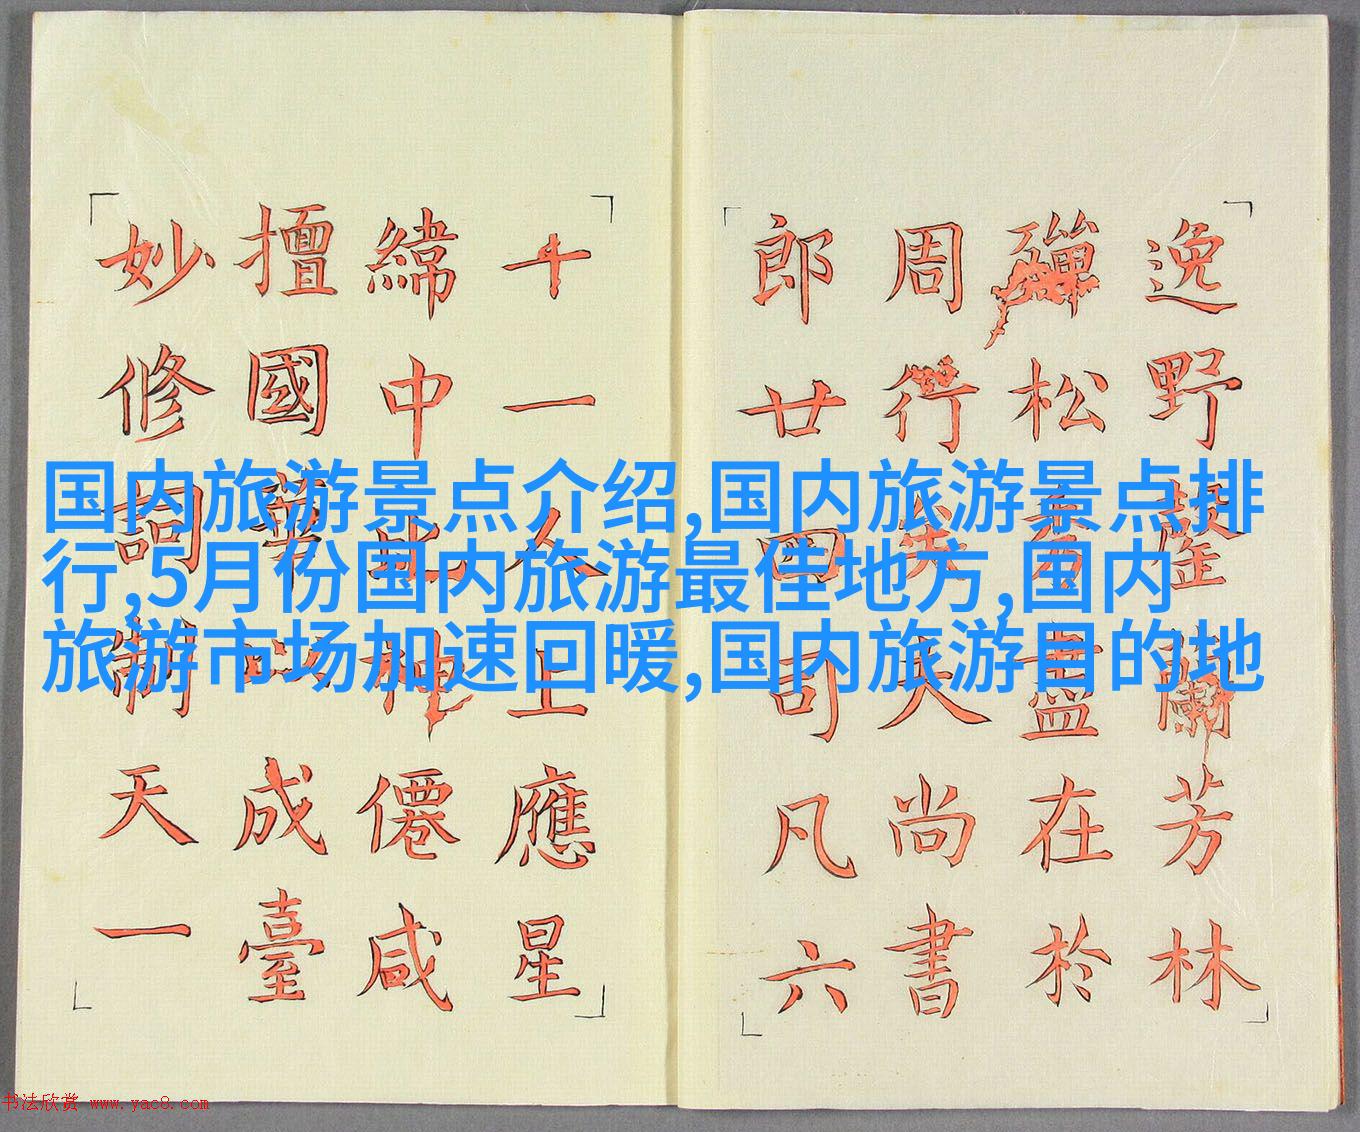 国内旅游景点介绍,国内旅游景点排
行,5月份国内旅游最佳地方,国内
旅游市场加速回暖,国内旅游目的地
逸野芳林
松盡在於
周行夫尚書
郎廿四司凡六
十一人上應星
緯中比神僊咸
擅國華以成臺
妙修詞制天一
书法欣赏 www.yac8.com